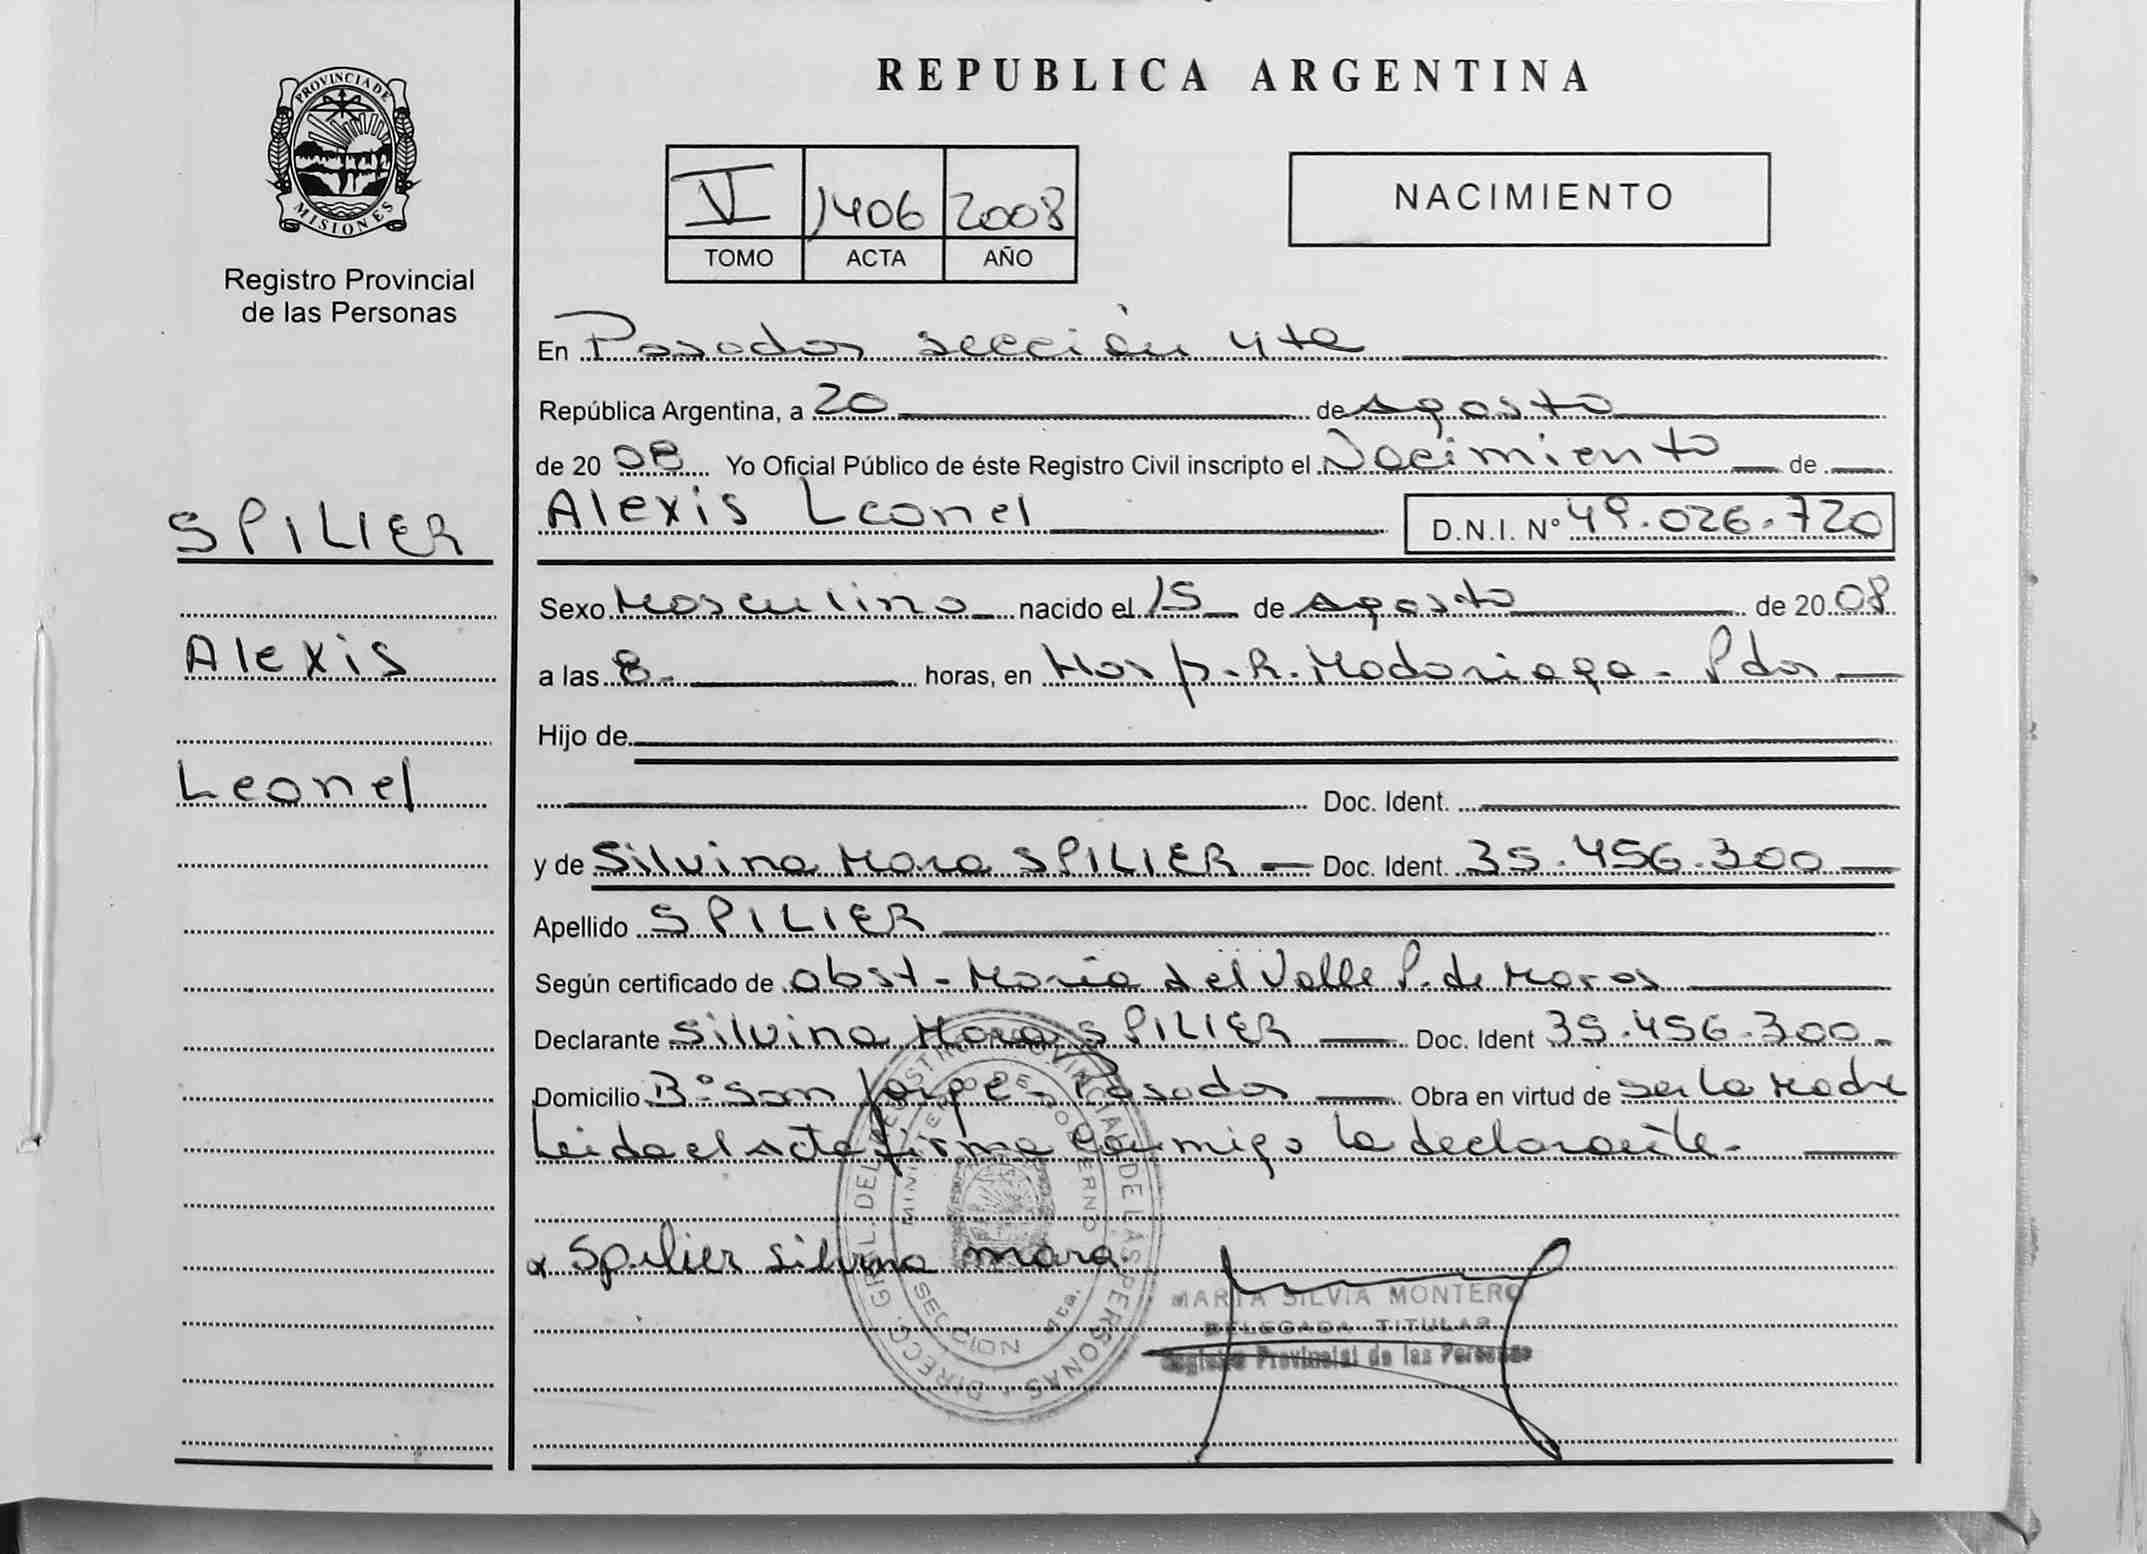 PROVINCIA DE
MISIONES
Registro Provincial
de las Personas
SPILIER
Alexis
Leonel
REPUBLICA ARGENTINA
V 1406 2008
TOMO ACTA AÑO
NACIMIENTO
En Posadas sección 4ta
República Argentina, a 20 de Agosto
de 2008 Yo Oficial Público de éste Registro Civil inscripto el Nacimiento de
Alexis Leonel D.N.I. N° 49.026.720
Sexo Masculino nacido el 15 de Agosto de 2008
a las 8 horas, en Hosp. R. Madariaga - Pdas
Hijo de
Doc. Ident.
y de Silvina Mara SPILIER Doc. Ident. 35.456.300
Apellido SPILIER
Según certificado de obst. María del Valle P. de Moras
Declarante Silvina Mara SPILIER Doc. Ident 35.456.300
Domicilio B° San Jorge - Posadas Obra en virtud de ser la Madre
Leida el Acta firma conmigo la declarante.
x Spilier silvina mara
DIRECC. GRAL. DEL REGISTRO PROVINCIAL DE LAS PERSONAS
MINISTERIO DE GOBIERNO
SECCION 4ta.
MARTA SILVIA MONTERO
DELEGADA TITULAR
Registro Provincial de las Personas